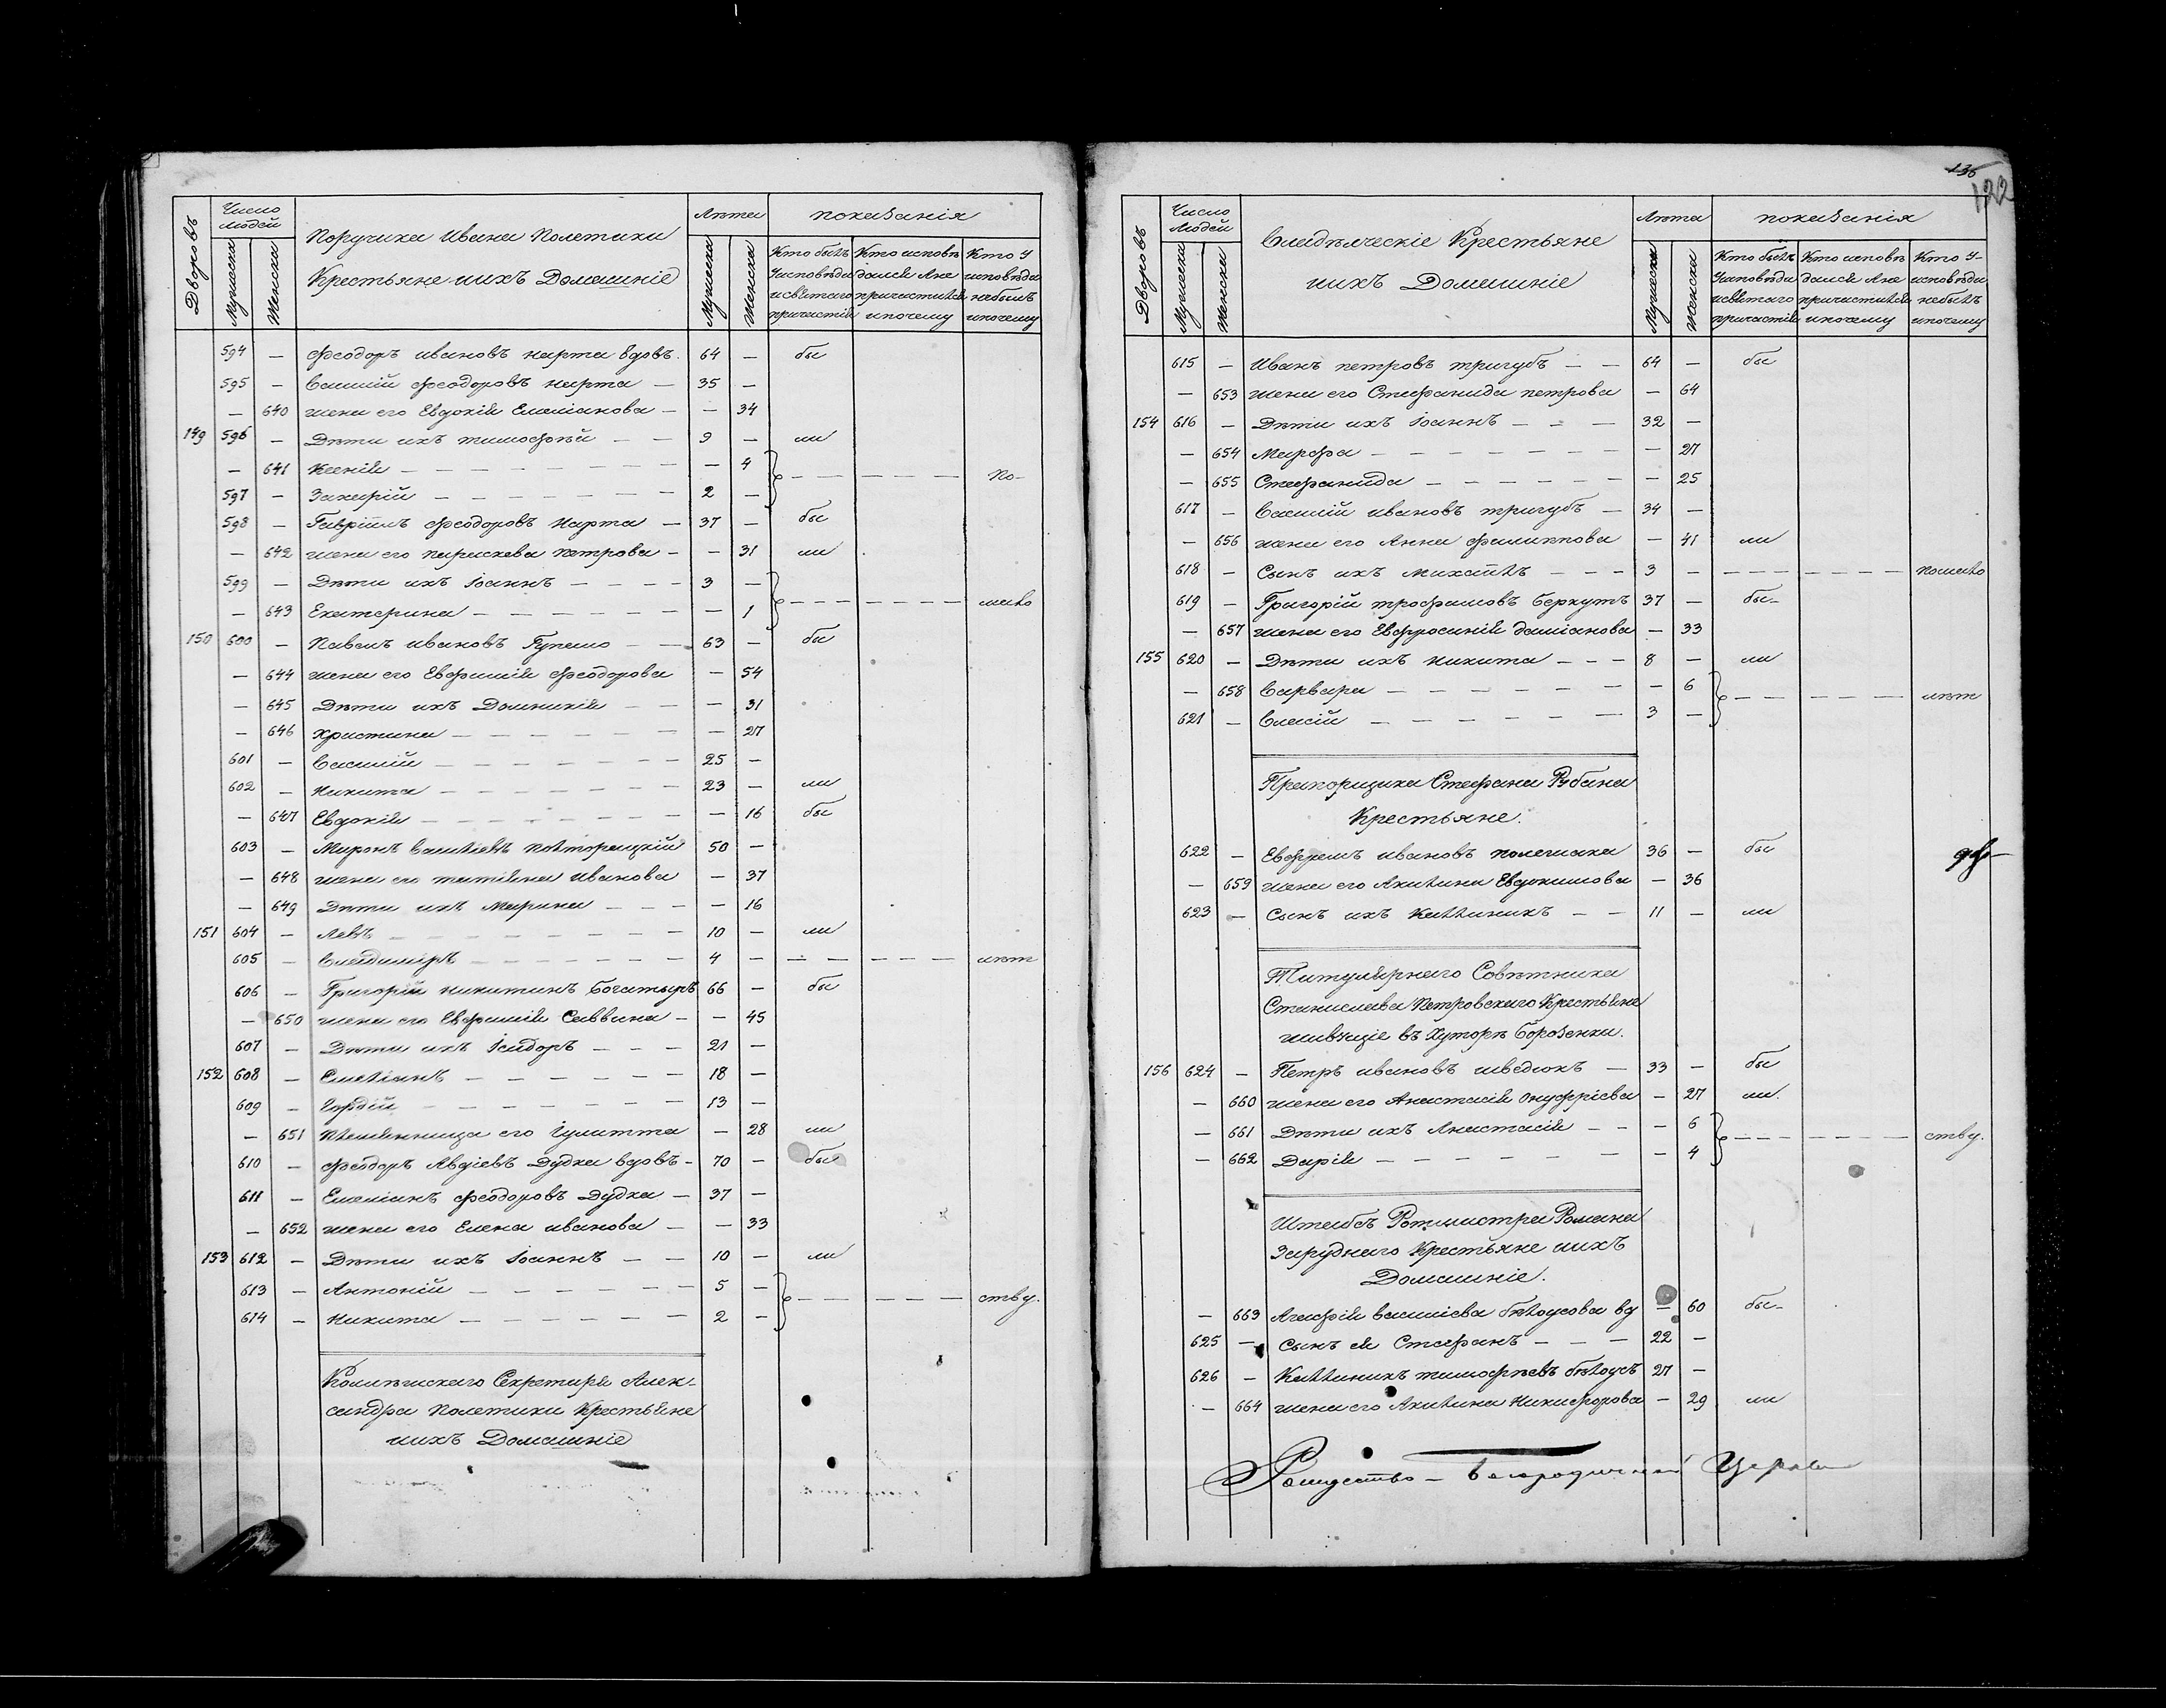 Дворовъ
Число людей
Мужеска
Женска
Поручика Ивана Полетики
Крестьяне и ихъ Домашніе
Лѣта
Мужеска
Женска
показанія
Кто былъ у исповѣди и святаго причастія
Кто исповѣдался а не причастился и почему
Кто у исповѣди небылъ и почему
594 — Феодоръ ивановъ карта вдовъ. 64 — бы
595 — Василій Феодоровъ карта — 35 —
— 640 жена его Евдокія Емеліанова — — 34
149 596 — Дѣти ихъ тимофѣй — — 9 — ли
— 641 Ксенія — — 4
597 — Захарій — 2 — — — — — — По-
598 — Гавріилъ Феодоровъ Карта — 37 — бы
— 642 жена его параскева Петрова — — 31 ли
599 — Дѣти ихъ Іоаннъ — — — 3 —
— 643 Екатерина — — 1 — — — — — мало
150 600 — Павелъ ивановъ — — 63 — бы
— 644 жена его Евфимія Феодорова — 54
— 645 Дѣти ихъ Домникія — — — 31
— 646 Христина — — 27
601 — Василій — 25 —
602 — Никита — 23 — ли
— 647 Евдокія — — 16 бы
603 — Миронъ Василіевъ Полторацкій 50 —
— 648 жена его татіяна Иванова — 37
— 649 Дѣти ихъ Марина — — — — 16
151 604 — Левъ — 10 — ли
605 — Владиміръ — 4 — — — — — — лѣт
606 — Григорій никитинъ Богатыръ 66 — бы
— 650 жена его Евфимія Саввина — — 45
607 — Дѣти ихъ Ісидоръ — — — 21 —
152 608 — Емеліанъ — 18 —
609 — Гордій — 13 —
— 651 племянница его Іулитта — 28 ли
610 — Феодоръ Авдіевъ Дудка вдовъ — 70 — бы
611 — Емеліанъ Феодоровъ Дудка — 37 —
— 652 жена его Елена иванова — — 33
153 612 — Дѣти ихъ Іоаннъ — — 10 — ли
613 — Антоній — 5 —
614 — Никита — 2 — — — — — — ству.
Колежскаго Секретаря Алек-
сандра Полетики Крестьяне
и ихъ Домашніе
136
122
Дворовъ
Число людей
Мужеска
Женска
Владѣлческіе Крестьяне
и ихъ Домашніе
Лѣта
Мужеска
Женска
показанія
Кто былъ у исповѣди и святаго причастія
Кто исповѣдался а не причастился и почему
Кто у исповѣди небылъ и почему
615 — Иванъ петровъ тригубъ — — 64 — бы
— 653 жена его Стефанида петрова — 64
154 616 — Дѣти ихъ Іоаннъ — — — 32 —
— 654 Марфа — — 27
— 655 Стефанида — — 25
617 — Василій ивановъ тригубъ — 34 —
— 656 жена его Анна филиппова — 41 ли
618 — Сынъ ихъ михаилъ — — — 3 — — — — — — Помало
619 — Григорій трофимовъ беркутъ 37 — бы-
— 657 жена его Евфросинія даміанова — 33
155 620 — Дѣти ихъ никита — — — 8 — ли
— 658 Варвара — — 6
621 — Власій — 3 — — — — — — лѣт
Прапорщика Стефана Рубана
Крестьяне.
622 — Евфремъ ивановъ 36 — бы
— 659 жена его Акилина Евдокимова — 36
623 — Сынъ ихъ Каллиникъ — — 11 — ли
Титулярнаго Совѣтника
Станислава Петровскаго Крестьяне
живущіе въ Хуторѣ Борозенки.
156 624 — Петръ ивановъ шведюкъ — 33 — бы
— 660 жена его Анастасія Онуфріева — 27 ли.
— 661 Дѣти ихъ Анастасія — — — 6
— 662 Дарія — — 4 — — — — — ству.
Штабсъ Ротмистра Романа
Заруднаго Крестьяне и ихъ
Домашніе.
— 663 Агафія Василіева бѣлоусова вд — 60 бы-
625 — Сынъ ея Стефанъ — — — 22 —
626 — Каллиникъ тимофѣевъ бѣлоусъ 27 —
— 664 жена его Акилина Никифорова — 29 ли
Рождество-Богородичной Церкви